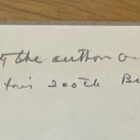 the author on
his 200th B